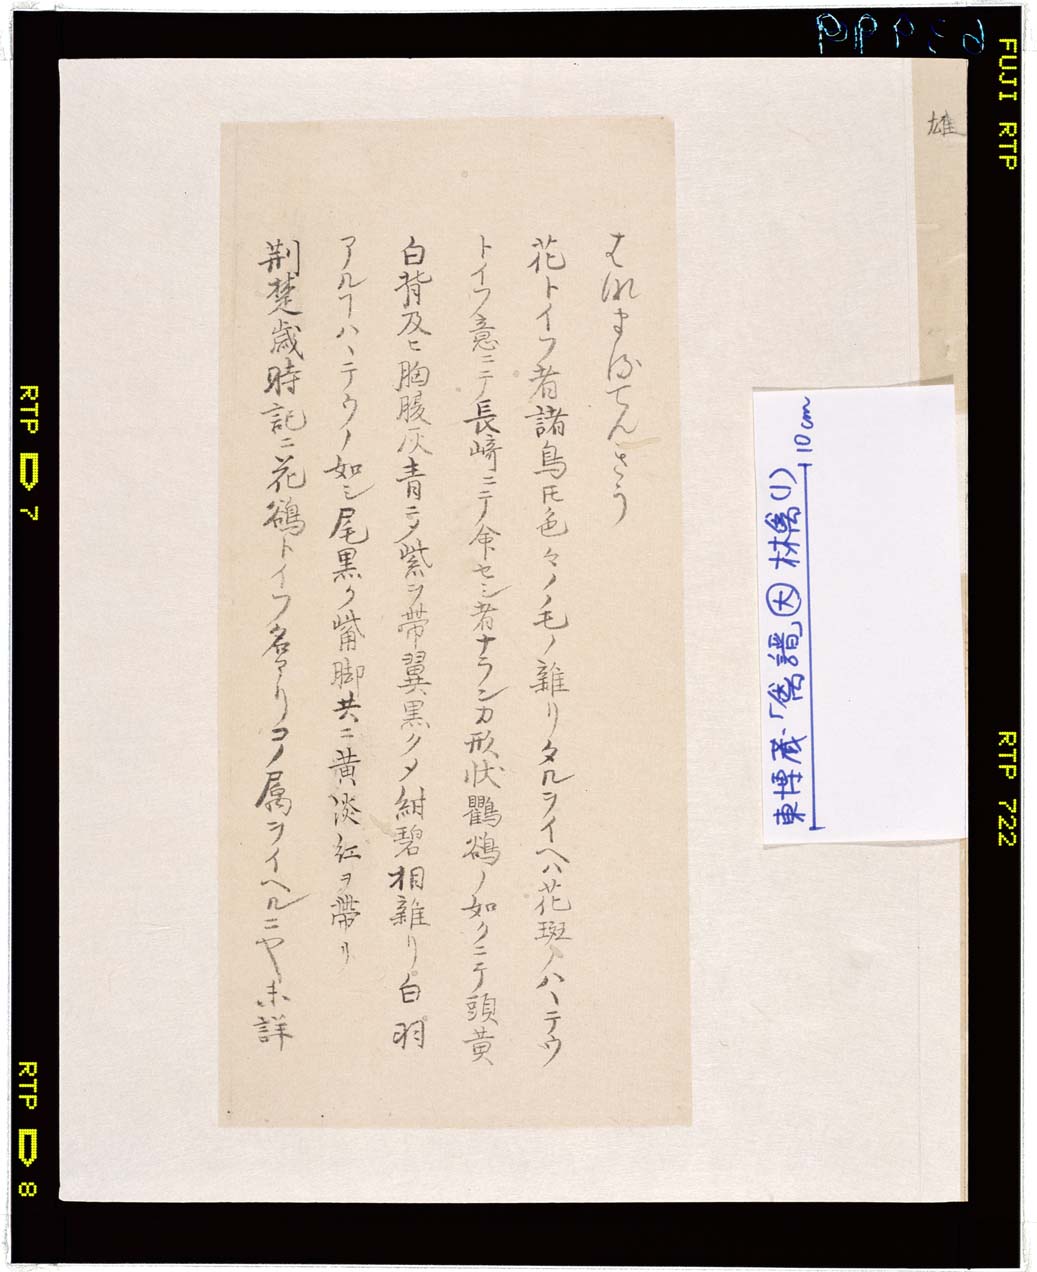 花トイフ者諸鳥氏色々ノ毛ノ雑リタルヲイヘハ花斑ノハヽテウ
トイフ意ニテ長崎ニテ命セシ者ナランカ形状鸜鵒ノ如クニテ頭黄
白背及ヒ胸腹灰青ニ〆紫ヲ帯翼黒ク〆紺碧相雑リ白羽
アルヿハヽテウノ如シ尾黒ク觜脚共ニ黄淡紅ヲ帯リ
荊楚歳時記ニ花鵒トイフ名アリコノ属ヲイヘルニヤ未詳
雄
東博蔵「禽譜㊅林禽(1)
10cm
FUJI RTP
RTP 722
RTP 7
RTP 8